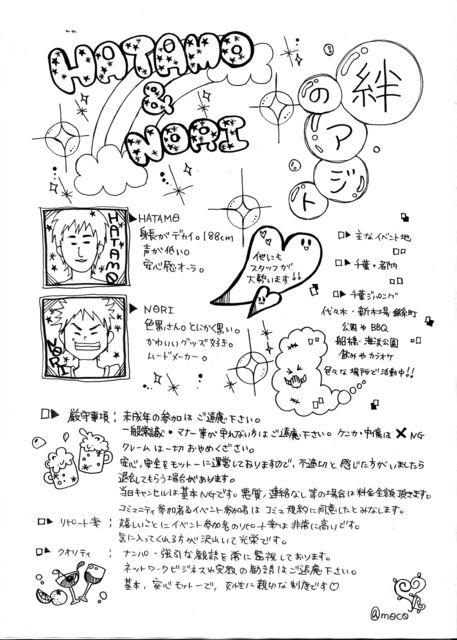 HATAMO
&
NORI
絆
の
ア
ジ
ト
HATAMO
▶HATAMO
身長がデカイ。188cm
声が低い。
安心感オーラ。
NORI
▶NORI
色黒さん。とにかく黒い。
かわいいグッズ好き。
ムードメーカー。
他にも
スタッフが
大勢います!!
□▶主なイベント地
□▶千葉・都内
□▶千葉ジャパニング
代々木・新木場・錦糸町
公園やBBQ
船橋・海浜公園
飲みやカラオケ
色々な場所で活動中!!
□▶厳守事項:未成年の参加はご遠慮下さい。
一般常識・マナー等が守れない方はご遠慮下さい。ケンカ・中傷は✖NG
クレームは一切おやめください。
安心、安全をモットーに運営しておりますので、不適切と感じた方がいましたら
退会してもらう場合があります。
当日キャンセルは基本NGです。悪質、連絡なし等の場合は料金全額頂きます。
コミュニティ参加者&イベント参加者はコミュ規約に同意したとみなします。
□▶リピート率:嬉しいことにイベント参加者のリピート率は非常に高いです。
気に入ってくれる方が沢山いて光栄です。
□▶クオリティ:ナンパ・強引な勧誘を常に監視しております。
ネットワークビジネスや宗教の勧誘はご遠慮下さい。
基本、安心モットーで、女性に親切な制度です♡
@moco